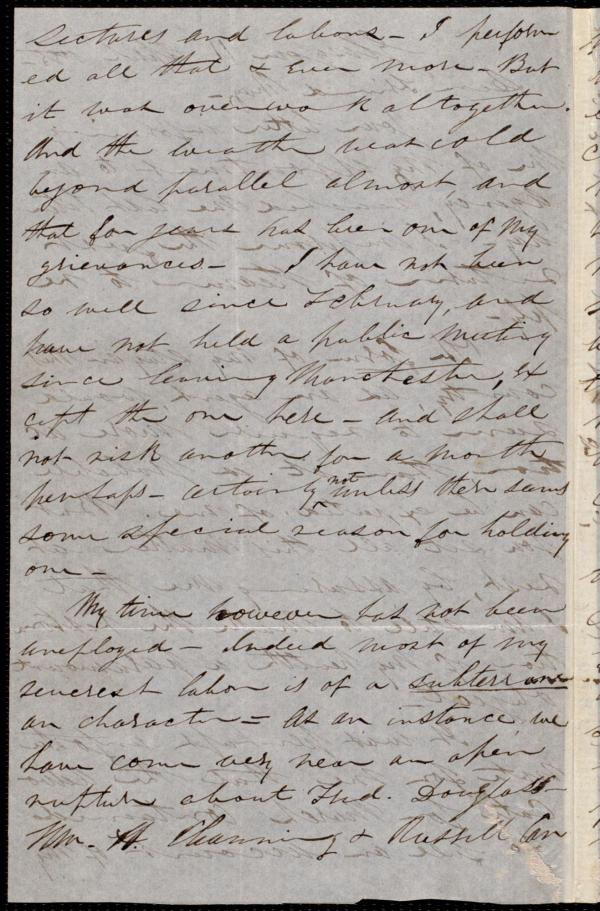 Lectures and labors - I perform
ed all that & even more - But
it was overwork altogether.
And the weather was cold
beyond parallel almost and
that for years has been one of my
grievances - I have not been
so well since February, and
have not held a public meeting
since leaving Manchester, ex
cept the one here - and shall
not risk another for a month
perhaps - certainly not unless there seems
some special reason for holding
one -
My time however has not been
unemployed - Indeed most of my
severest labor is of a subterrane
an character - As an instance, we
have come very near an open
rupture about Fred. Douglass -
Wm. H. Channing & Russell Car